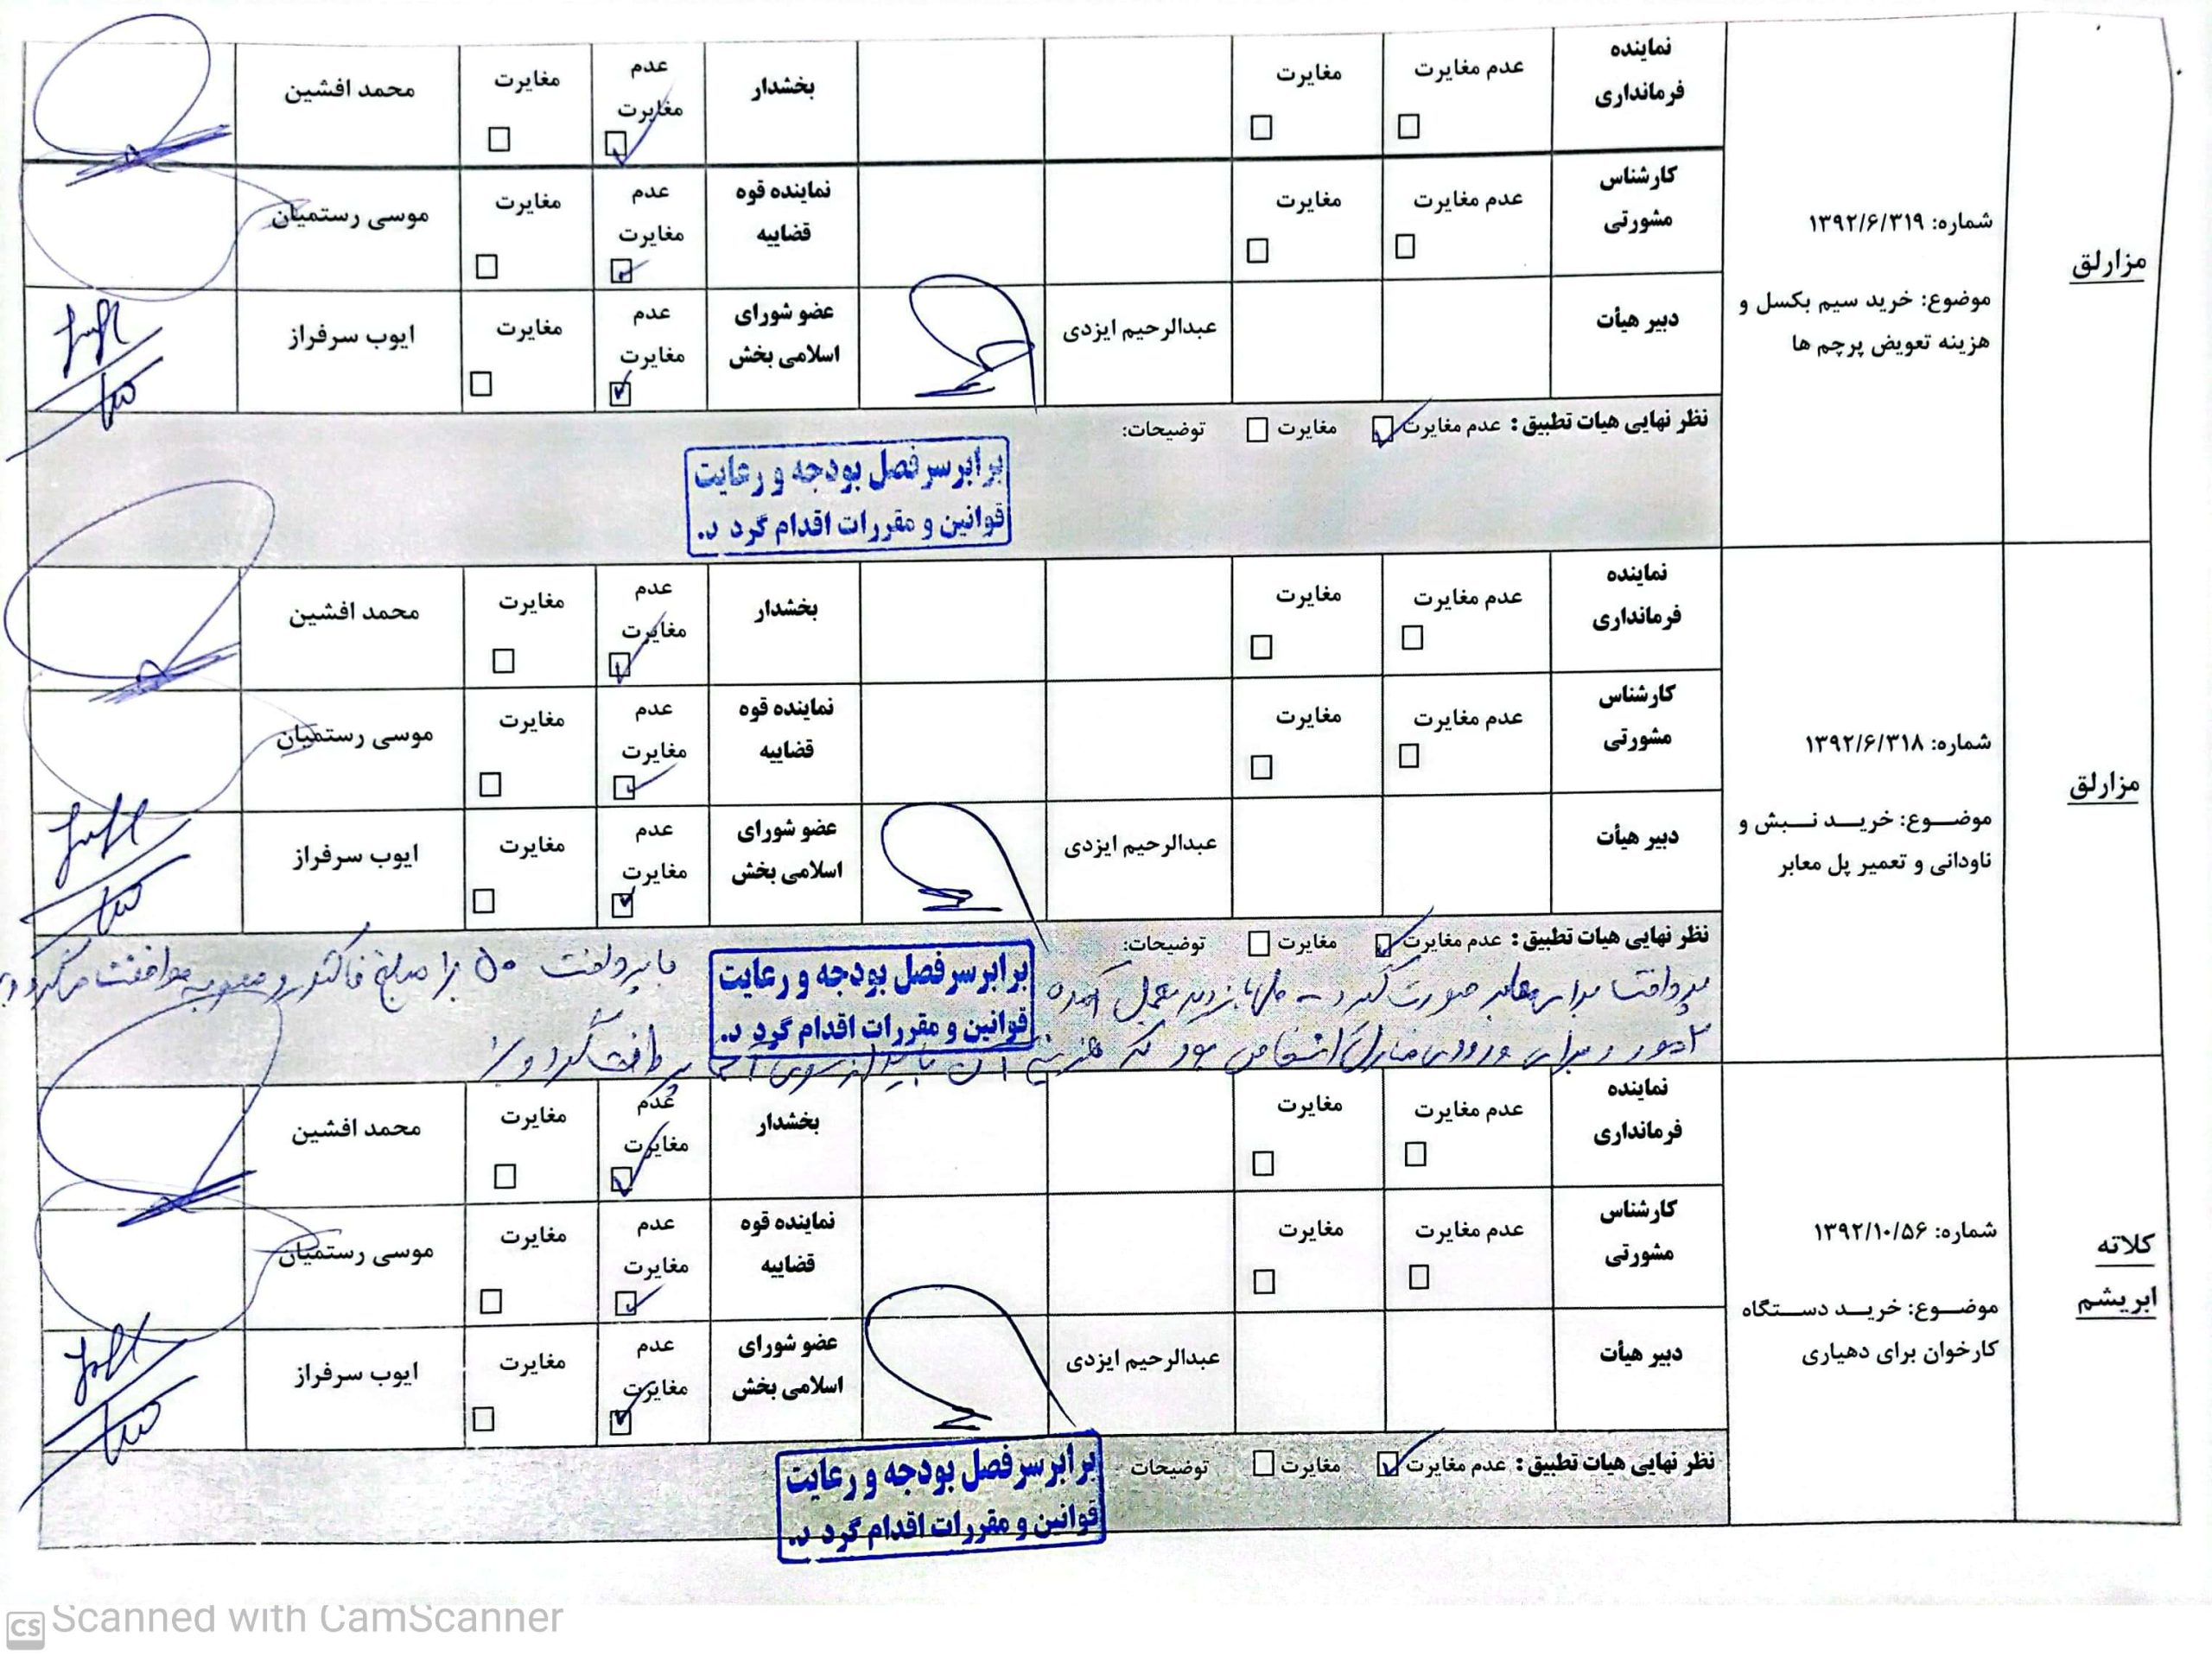 مزارلق
شماره: ۱۳۹۲/۶/۳۱۹
موضوع: خرید سیم بکسل و
هزینه تعویض پرچم ها
نماینده
فرمانداری
عدم مغایرت
مغایرت
بخشدار
عدم
مغایرت
مغایرت
محمد افشین
کارشناس
مشورتی
عدم مغایرت
مغایرت
نماینده قوه
قضاییه
عدم
مغایرت
مغایرت
موسی رستمیان
دبیر هیأت
عبدالرحیم ایزدی
عضو شورای
اسلامی بخش
عدم
مغایرت
مغایرت
ایوب سرفراز
نظر نهایی هیات تطبیق: عدم مغایرت مغایرت توضیحات:
برابر سر فصل بودجه و رعایت
قوانین و مقررات اقدام گرد د.
مزارلق
شماره: ۱۳۹۲/۶/۳۱۸
موضوع: خرید نبش و
ناودانی و تعمیر پل معابر
نماینده
فرمانداری
عدم مغایرت
مغایرت
بخشدار
عدم
مغایرت
مغایرت
محمد افشین
کارشناس
مشورتی
عدم مغایرت
مغایرت
نماینده قوه
قضاییه
عدم
مغایرت
مغایرت
موسی رستمیان
دبیر هیأت
عبدالرحیم ایزدی
عضو شورای
اسلامی بخش
عدم
مغایرت
مغایرت
ایوب سرفراز
نظر نهایی هیات تطبیق: عدم مغایرت مغایرت توضیحات:
برابر سر فصل بودجه و رعایت
قوانین و مقررات اقدام گرد د.
با پرداخت ۵۰٪ از مبلغ فاکتور و مصوبه موافقت میگردد
صورت گیرد بعمل آمده
ورودی منازل اشخاص بود که هزینه آن باید از سوی پرداخت گردد
کلاته
ابریشم
شماره: ۱۳۹۲/۱۰/۵۶
موضوع: خرید دستگاه
کارخوان برای دهیاری
نماینده
فرمانداری
عدم مغایرت
مغایرت
بخشدار
عدم
مغایرت
مغایرت
محمد افشین
کارشناس
مشورتی
عدم مغایرت
مغایرت
نماینده قوه
قضاییه
عدم
مغایرت
مغایرت
موسی رستمیان
دبیر هیأت
عبدالرحیم ایزدی
عضو شورای
اسلامی بخش
عدم
مغایرت
مغایرت
ایوب سرفراز
نظر نهایی هیات تطبیق: عدم مغایرت مغایرت توضیحات
برابر سر فصل بودجه و رعایت
قوانین و مقررات اقدام گرد د.
CS Scanned with CamScanner